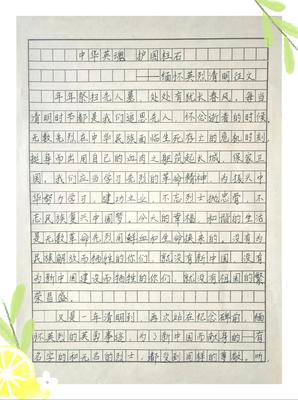 中华英魂 护国柱石
——缅怀英烈清明征文
年年祭扫先人墓，处处有犹长春风，每当
清明时节都是我们追思老人、怀念逝者的时候。
无数先烈在中华民族面临生死存亡的危机时刻，
挺身而出用自己的血肉之躯筑起长城，保家卫
国。我们应当学习先烈的革命精神，为振兴中
华努力学习，建功立业，不忘烈士抛忠骨，不
忘民族复兴中国梦。今天的幸福、和谐的生活
是无数革命先烈用鲜血和生命换来的。没有为
民族解放而牺牲的你们，就没有新中国，没有
为新中国建设而牺牲的你们，就没有祖国的繁
荣昌盛。
又是一年清明到，再次站在纪念碑前，缅
怀英烈的英勇事迹，为了新中国而献身的一有
名字的和无名的烈士，都受到同样的尊敬。听